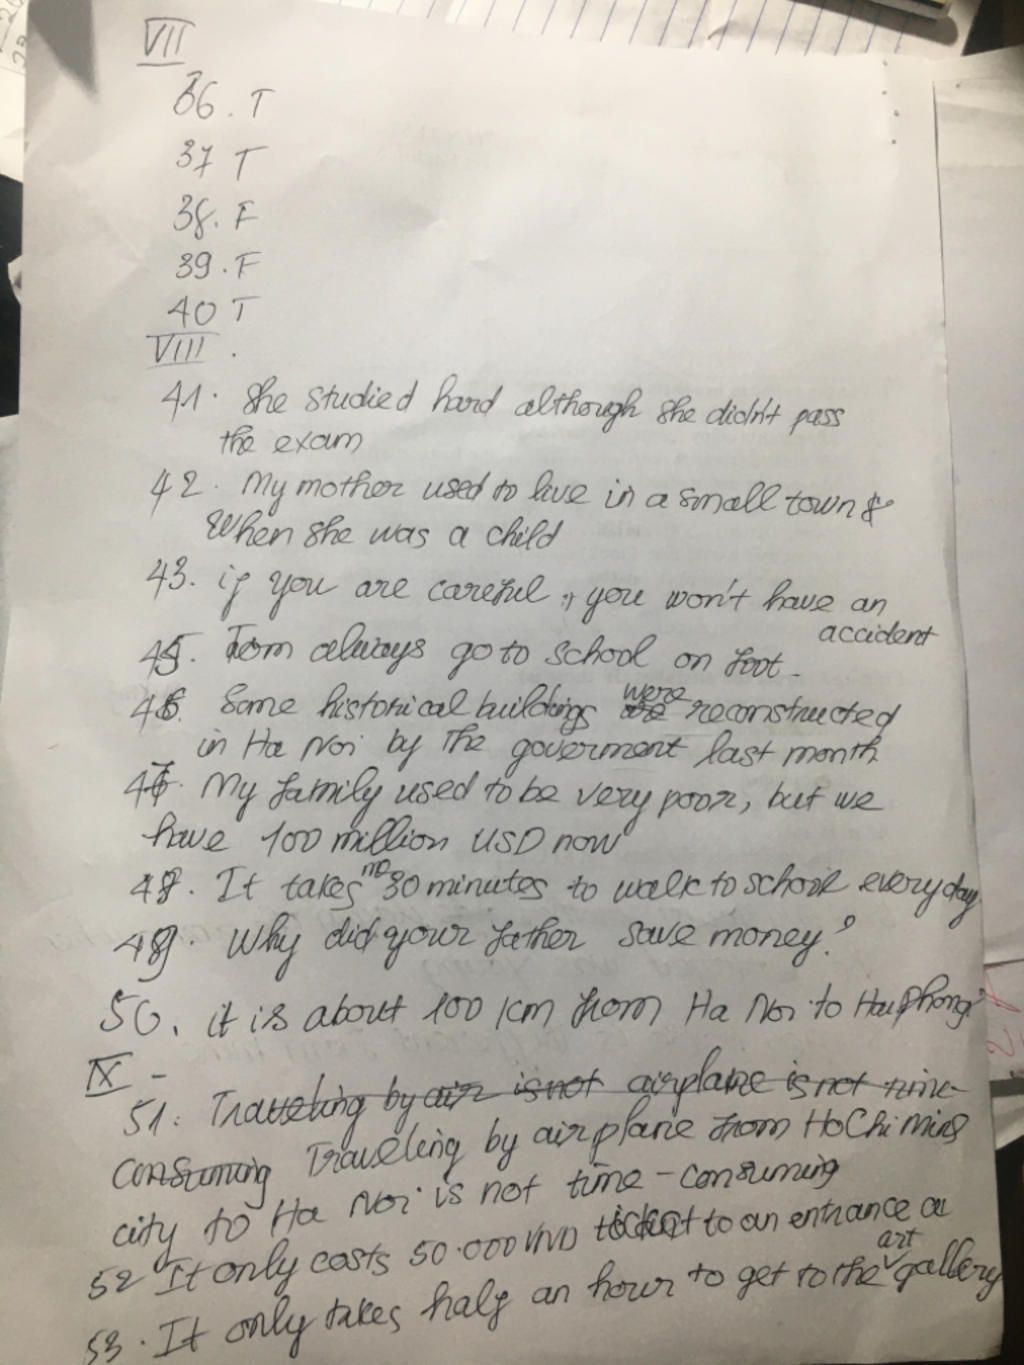 VII
36. T
37 T
38. F
39. F
40 T
VIII.
41. She studied hard although she didn't pass
the exam
42. My mother used to live in a small town
When she was a child
43. if you are careful, you won't have an
accident
45. Tom always go to school on foot.
46. Some historical buildings were reconstructed
in Ha Noi by The goverment last month
47. My family used to be very poor, but we
have 100 million USD now
48. It takes me 30 minutes to walk to school everyday
49. Why did your father save money?
50. it is about 100 km from Ha Noi to Hai phong
IX -
51. Traveling by air is not airplane is not time-
consuming Traveling by airplane from Ho Chi Ming
city to Ha Noi is not time-consuming
52 It only costs 50.000 VND to an entrance
53. It only takes half an hour to get to the art gallery